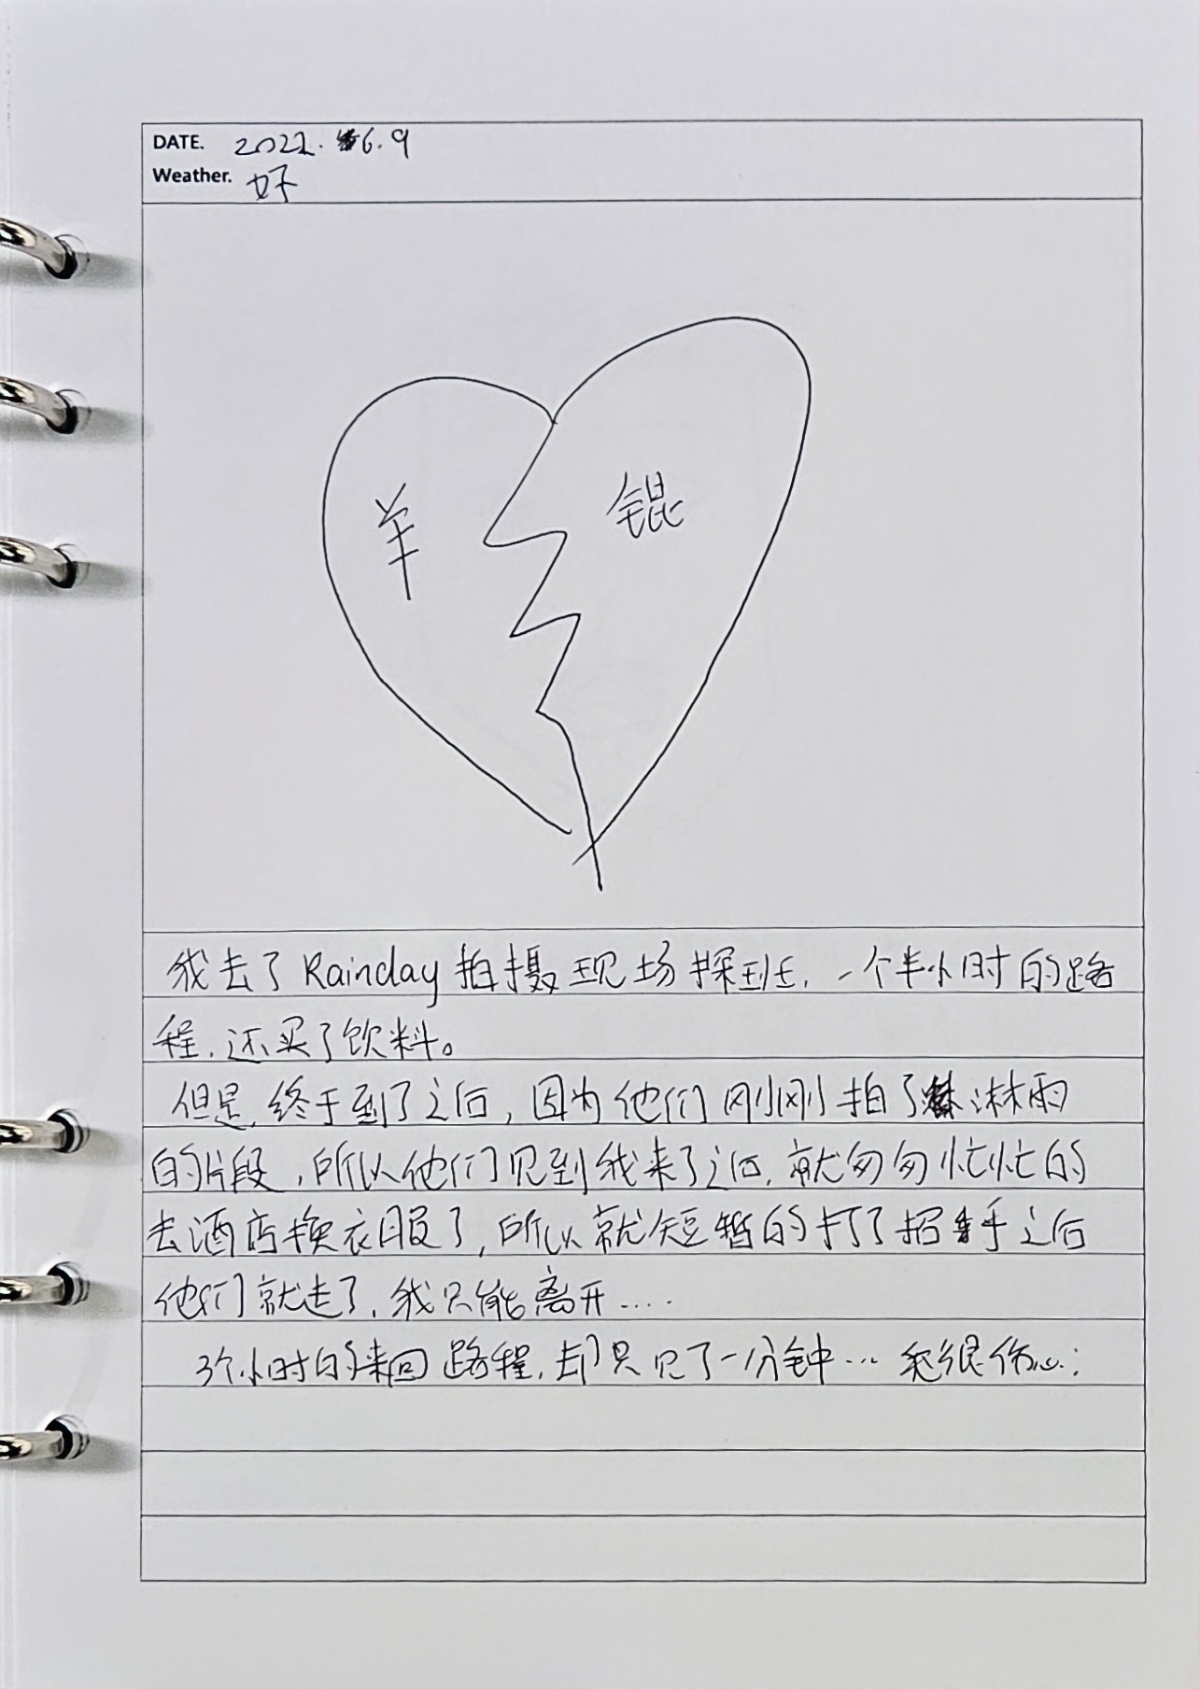 DATE. 2022. 6.9
Weather. 好
羊 锟
我去了Rainday拍摄现场探班,一个半小时的路
程,还买了饮料。
但是,终于到了之后,因为他们刚刚拍了淋雨
的片段,所以他们见到我来了之后,就匆匆忙忙的
去酒店换衣服了,所以就短暂的打了招手之后
他们就走了,我只能离开....
3个小时的来回路程,却只见了一分钟...我很伤心: